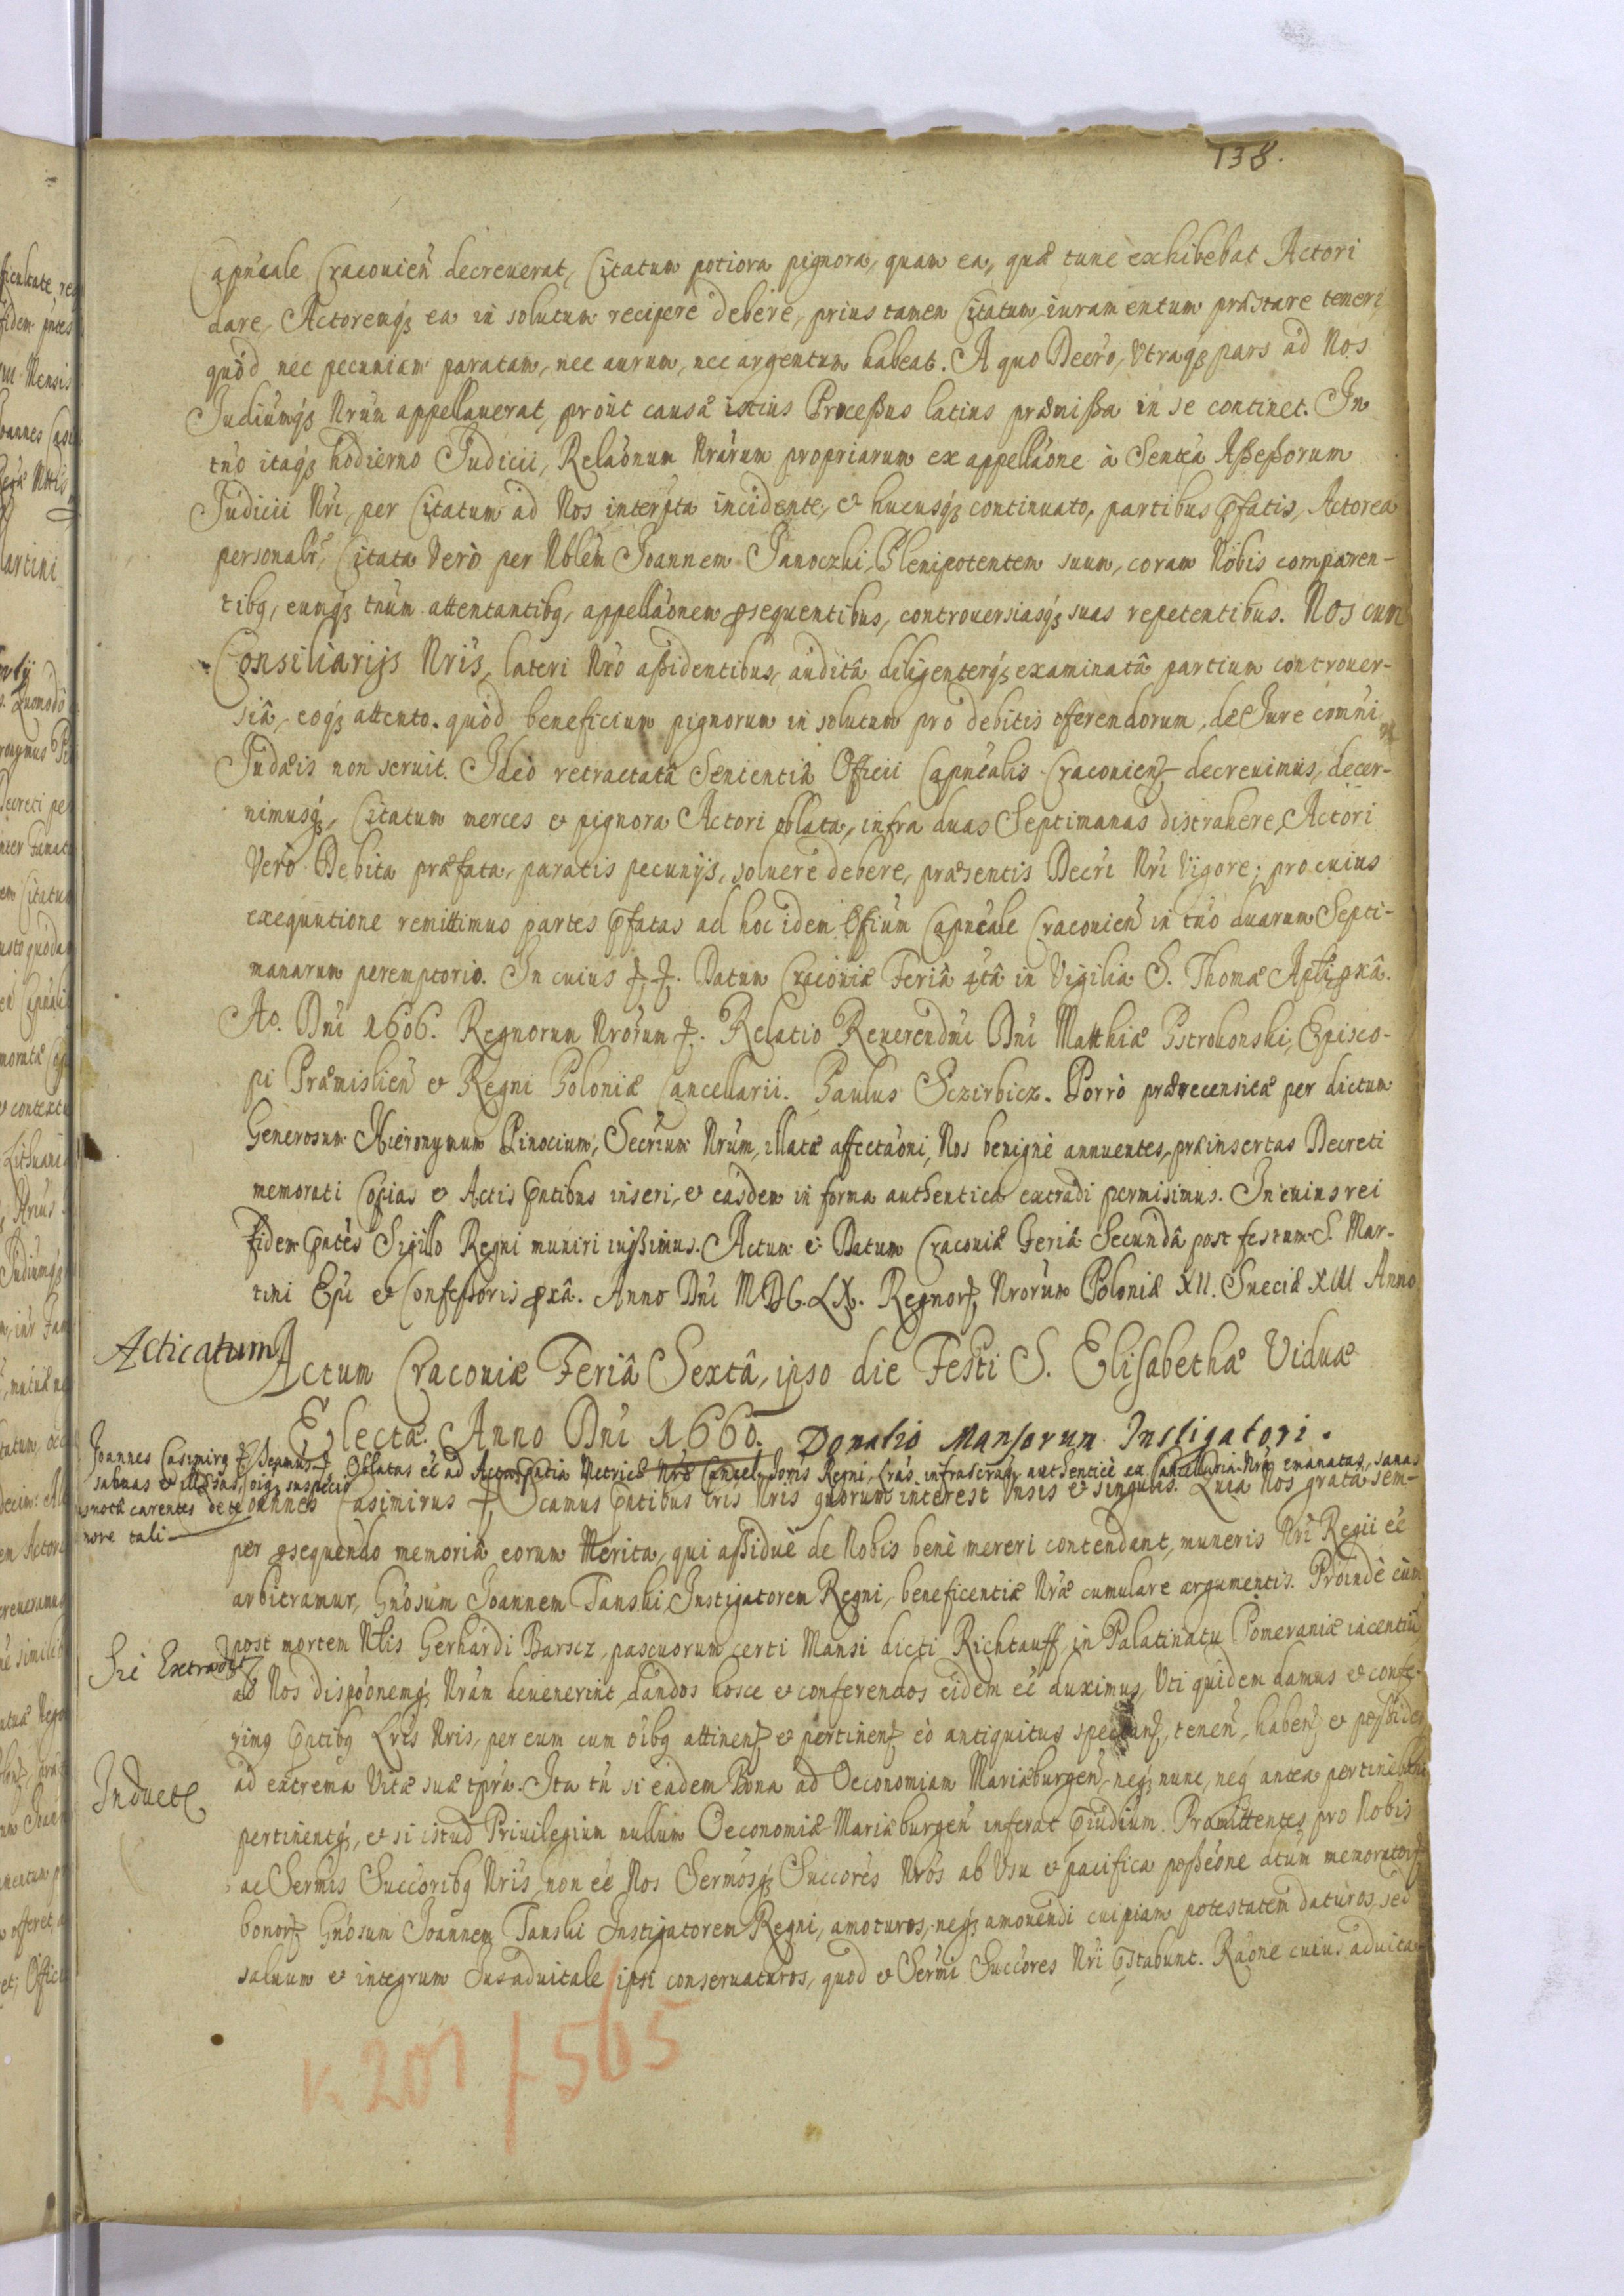 138.
Capnéale Cracouien̄ decreuerat, Citatum potiora pignora, quam ea, quæ tunc exhibebat Actori
dare, Actoremq́ꝫ ea in solutum recipere debere, prius tamen Citatum iuramentum præstare teneri
quòd nec pecuniam paratam, nec aurum, nec argentum habeat. A quo Decr̃o, Vtraq́ꝫ pars ad Nos
Judiumq́ꝫ Nrũm appellauerat, proùt causa istius Processus latius præmissa in se continet. In
tñ́o itaq́ꝫ hodierno Judicii, Relaõnum Nrãrum propriarum ex appellaõne à Sentẽa Assessorum
Judicii Nrĩ, per Citatum ad Nos interpta incidente, & hucusq́ꝫ continuato, partibus p̄fatis, Actorea
personalr̃, Citata Verò per Nblẽm Joannem Janoczki, Plenipotentem suum, coram Nobis comparen-
tibꝗ, eumq́ꝫ tñum attentantibꝗ, appellaõnem ꝓsequentibus, controuersiasq́ꝫ suas repetentibus. Nos cum
Consiliarijs Nrĩs, lateri Nrõ assidentibus, auditâ diligenterq́ꝫ examinatâ partium controuer-
siâ, eoq́ꝫ attento. quòd beneficium pignorum in solutum pro debitis offerendorum, de Jure com̃ni
Judæis non seruit. Ideò retractatâ Sententiâ Officii Capnéalis Cracouien̄ decreuimus, decer-
nimusq́ꝫ, Citatum merces & pignora Actori oblata, infra duas Septimanas distrahere, Actori
Verò Debita præfata, paratis pecunijs, soluere debere, præsentis Decrĩ Nrĩ Vigore; pro cuius
exequutione remittimus partes p̄fatas ad hoc idem Offium Capnéale Cracouien̄ in tñ́o duarum Septi-
manarum peremptorio. In cuius ꝛ. ꝛ. Datum Cracouiæ Feriâ 4tâ in Vigilia S. Thomæ Apl̃i ꝓxâ.
Ao. Dnĩ 1606. Regnorum Nrõrum ꝛ. Relatio Reuerendmĩ Dnĩ Matthiæ Pstrokonski, Episco-
pi Præmislien̄ & Regni Poloniæ Cancellarii. Paulus Sczirbicz. Porrò præreeensitæ per dictum
Generosum Hieronymum Pinocium, Secrium Nrũm, illatæ affectaõni, Nos benignè annuentes, præinsertas Decreti
memorati Copias & Actis p̄ntibus inseri, & easdem in forma authentica extradi permisimus. In cuius rei
fidem p̄ntẽs Sigillo Regni muniri iussimus. Actum & Datum Cracouiæ Feriâ Secundâ post festum S. Mar-
tini Ep̃i & Confessoris ꝓxâ. Anno Dnĩ MDC.LX. Regnorꝝ Nrõrum Poloniæ XII. Sueciæ XIII Anno
Acticatum.
Actum Cracouiæ Feriâ Sextâ, ipso die Festi S. Elisabethæ Viduæ
Electæ. Anno Dnĩ 1660. Donatio Mansorum Instigatori.
Joannes Casimirꝗ ꝛ Significamus ꝛ Oblatas eẽ ad Acta p̄ntia Metricæ Nrã Cancel̃ Joris Regni, Lrãs infrascrãs authenticè ex Cancellaria Nrã emanatas, sanas
saluas & illæsas, oĩqꝫ suspecio
nis notâ carentes de te
nore tali
Joannes Casimirus ꝛ. Notũ facimus p̄ntibus Lrĩs Nrĩs quorum interest Vnsis & singulis. Quia Nos gratâ sem-
per ꝓsequendo memoriâ eorum Merita, qui assiduè de Nobis benè mereri contendant, muneris Nrĩ Regii eẽ
arbitramur, Gnõsum Joannem Tanski Instigatorem Regni, beneficentiæ Nrã cumulare argumentis. Proindè cùm
Sic Extraditꝫ
post mortem Nblis Gerhardi Barscz, pascuorum certi Mansi dicti Richtauff in Palatinatu Pomeraniæ iacentiũ
ad Nos dispoõnemq́ꝫ Nrãm deuenerint, dandos hosce & conferendos eidem eẽ duximus, Vti quidem damus & confe-
rimꝗ p̄ntibꝗ Lrĩs Nrĩs, per eum cum oĩbꝗ attinenꝫ & pertinenꝫ eò antiquitus spectanꝫ, tenen̄, haben̄ & possiden̄
Inductꝫ
ad extrema Vitæ suæ tp̃ra. Ita tñ si eadem Bona ad Oeconomiam Mariæburgen̄, neq́ꝫ nunc, neq́ꝫ antea pertinebant
pertinentq́ꝫ, & si istud Priuilegium nullum Oeconomiæ Mariæburgen̄ inferat p̄iudium. Promittentes pro Nobis
ac Serm̃is Succõribꝗ Nrĩs, non eẽ Nos Sermõsq́ꝫ Succõres Nrõs ab Vsu & pacifica posseõne dtũm memoratorꝝ
bonorꝝ Gnõsum Joannem Tanski Instigatorem Regni, amoturos, neq́ꝫ amouendi cuipiam potestatem daturos, sed
saluum & integrum Jus aduitale ipsi conseruaturos, quod & Serm̃i Succõres Nrĩ p̄stabunt. Raõne cuius aduita-
K. 201 f 565